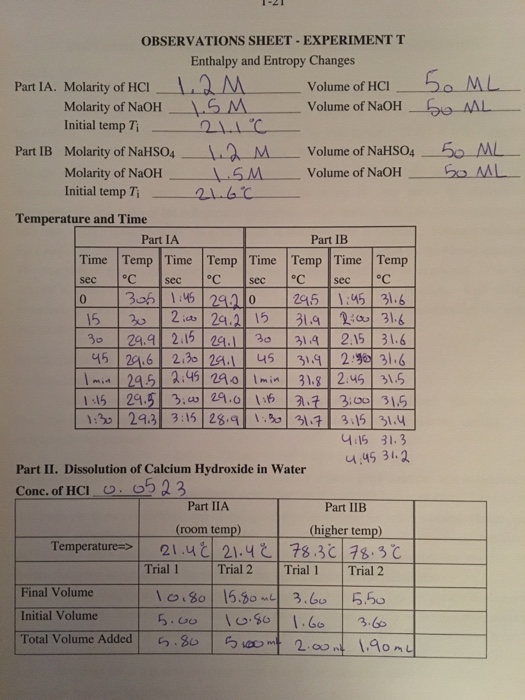 1-21
OBSERVATIONS SHEET - EXPERIMENT T
Enthalpy and Entropy Changes
Part IA. Molarity of HCl 1.2 M Volume of HCl 50 ML
Molarity of NaOH 1.5 M Volume of NaOH 50 ML
Initial temp Ti 21.1°C
Part IB Molarity of NaHSO4 1.2 M Volume of NaHSO4 50 ML
Molarity of NaOH 1.5M Volume of NaOH 50 ML
Initial temp Ti 21.6°C
Temperature and Time
Part IA Part IB
Time Temp Time Temp Time Temp Time Temp
sec °C sec °C sec °C sec °C
0 30.6 1:45 29.2 0 29.5 1:45 31.6
15 30 2:00 29.2 15 31.9 2:00 31.6
30 29.9 2:15 29.1 30 31.9 2:15 31.6
45 29.6 2:30 29.1 45 31.9 2:30 31.6
1 min 29.5 2:45 29.0 1 min 31.8 2:45 31.5
1:15 29.5 3:00 29.0 1:15 31.7 3:00 31.5
1:30 29.3 3:15 28.9 1:30 31.7 3:15 31.4
4:15 31.3
4:45 31.2
Part II. Dissolution of Calcium Hydroxide in Water
Conc. of HCl 0.0523
Part IIA Part IIB
(room temp) (higher temp)
Temperature=> 21.4°C 21.4°C 78.3°C 78.3°C
Trial 1 Trial 2 Trial 1 Trial 2
Final Volume 10.80 15.80 mL 3.60 5.50
Initial Volume 5.00 10.80 1.60 3.60
Total Volume Added 5.80 5.00 mL 2.00 mL 1.90 mL